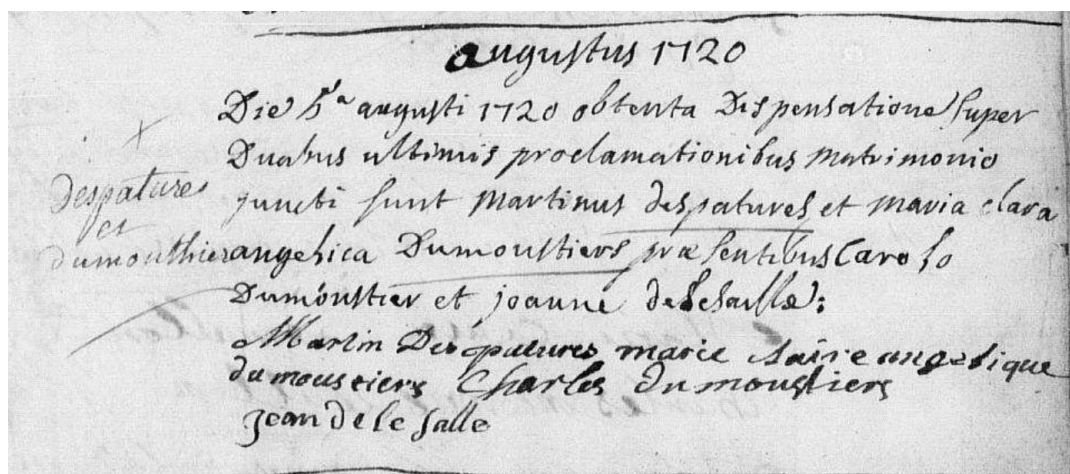 augustus 1720
Die 5a augusti 1720 obtenta Dispensatione super
Duabus ultimis proclamationibus matrimonio
juncti sunt Martinus despatures et maria clara
angelica Dumoustiers præsentibus Carolo
Dumoustier et joanne delesalle:
despatures
et
dumouthier
Martin Despatures marie claire angelique
dumoustiers Charles dumoustiers
jean de le salle